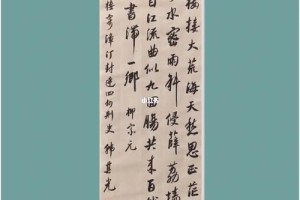 楼接大荒海天愁思正茫
水密雨斜侵薜荔墙
目江流曲似九回腸共来百
書滞一鄉 柳宗元
楼寄漳汀封連四州刺史